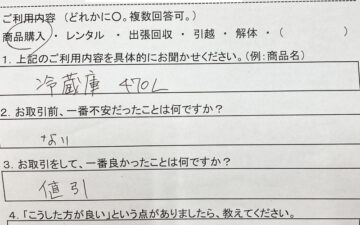 ご利用内容 (どれかに〇。複数回答可。)
商品購入 ・ レンタル ・ 出張回収 ・ 引越 ・ 解体 ・(
1. 上記のご利用内容を具体的にお聞かせください。(例:商品名)
冷蔵庫 470L
2. お取引前、一番不安だったことは何ですか?
なし
3. お取引をして、一番良かったことは何ですか?
値引
4.「こうした方が良い」という点がありましたら、教えてください。